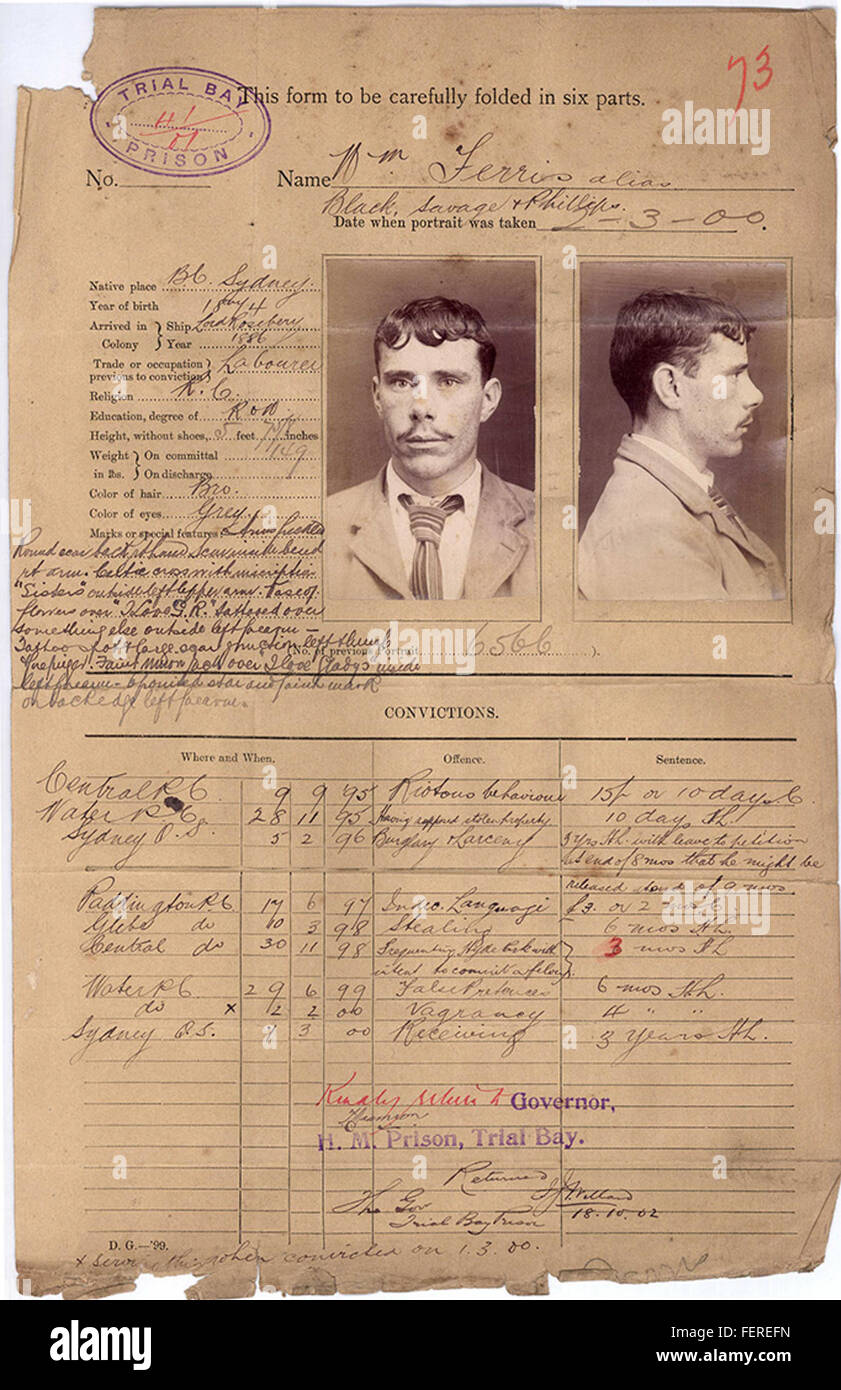 73
TRIAL BAY
PRISON
This form to be carefully folded in six parts.
No. Name Wm Ferris alias
Black, Savage & Phillips.
Date when portrait was taken -3-00.
Native place B.C. Sydney.
Year of birth 1874
Arrived in Colony } Ship Lord Rosebery
Year 1886
Trade or occupation previous to conviction } Labourer
Religion R.C.
Education, degree of R & W
Height, without shoes, 5 feet inches
Weight in lbs. } On committal 149
On discharge
Color of hair Bro.
Color of eyes Grey
Marks or special features: Arms freckled
Round scar back rt hand scar inside bend
rt arm. Celtic cross with inscription
"Sisters" outside left upper arm. Vase of
flowers over "I Love G.R." tattooed over
something else outside left forearm -
Tattoo spot & large scar junction left thumb
& forefinger. Faint over I love Gladys inside
left forearm - 6 pointed star and faint mark
on back edge left forearm.
(No. of previous Portrait 6566 ).
CONVICTIONS.
Where and When. Offence. Sentence.
Central P.C. 9 9 95 Riotous behaviour 15/- or 10 days L.
Water P.C. 28 11 95 Having supposed stolen Property 10 days H.L.
Sydney Q.S. 5 2 96 Burglary & Larceny 3 yrs H.L. with leave to petition
at end of 8 mos that he might be
released at end of 9 mos.
Paddington P.C. 17 6 97 Indec. Language £3. or 2 mos L
Glebe do 10 3 98 Stealing 6 mos H.L.
Central do 30 11 98 Frequenting Hyde Park with
intent to commit a felony. } 3 mos H.L.
Water P.C. 29 6 99 False Pretences 6 mos H.L.
do x 2 2 00 Vagrancy 4 " "
Sydney Q.S. 1 3 00 Receiving 3 Years H.L.
Kindly return to Governor,
H. M. Prison, Trial Bay.
Returned
The Gov
Trial Bay Prison
18.10.02
D. G.—'99.
x Serving this when convicted on 1.3.00.
alamy stock photo
FEREFN
www.alamy.com